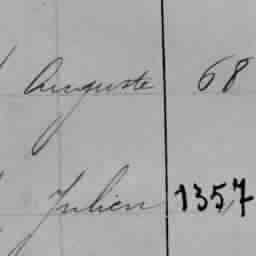 Auguste 68
Julien 1357